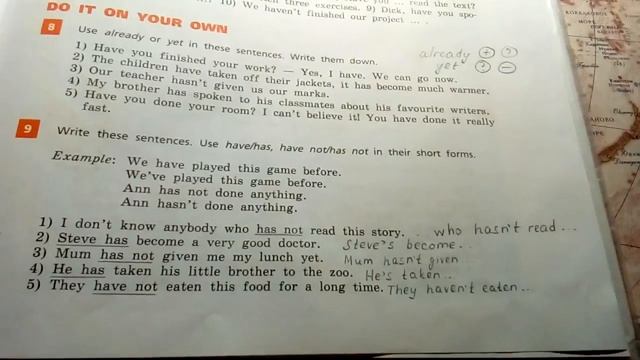 three exercises. 9) Dick, have you spo-
read the text?
10) We haven't finished our project ... .
DO IT ON YOUR OWN
8 Use already or yet in these sentences. Write them down.
already + ?
yet ? −
1) Have you finished your work? — Yes, I have. We can go now.
2) The children have taken off their jackets, it has become much warmer.
3) Our teacher hasn't given us our marks.
4) My brother has spoken to his classmates about his favourite writers.
5) Have you done your room? I can't believe it! You have done it really
fast.
9 Write these sentences. Use have/has, have not/has not in their short forms.
Example: We have played this game before.
We've played this game before.
Ann has not done anything.
Ann hasn't done anything.
1) I don't know anybody who has not read this story. . who hasn't read...
2) Steve has become a very good doctor. Steve's become..
3) Mum has not given me my lunch yet. Mum hasn't given
4) He has taken his little brother to the zoo. He's taken..
5) They have not eaten this food for a long time. They haven't eaten...